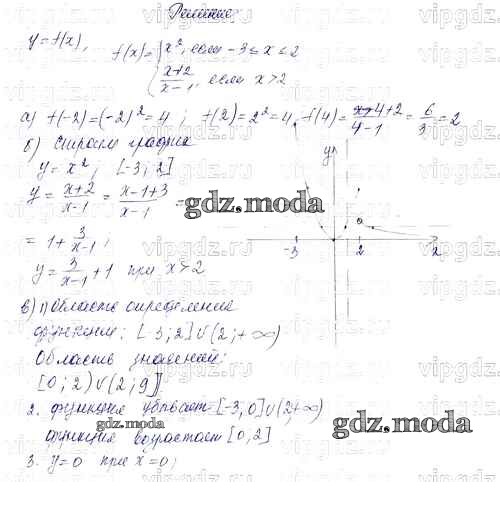 Решение:
y=f(x), f(x)={x², если -3≤x≤2
{x+2/x-1, если x>2
а) f(-2)=(-2)²=4; f(2)=2²=4, f(4)=4+2/4-1=6/3=2
б) Строим график
y=x², [-3;2]
y=x+2/x-1=x-1+3/x-1=
=1+3/x-1;
y=3/x-1+1 при x>2
в) 1) Область определения
функции: [-3;2]∪(2;+∞)
Область значений:
[0;2)∪(2;9]
2. функция убывает [-3,0]∪(2;+∞)
функция возрастает [0,2]
3. y=0 при x=0;
y
-3 2 x
gdz.moda
gdz.moda
gdz.moda
vipgdz.com